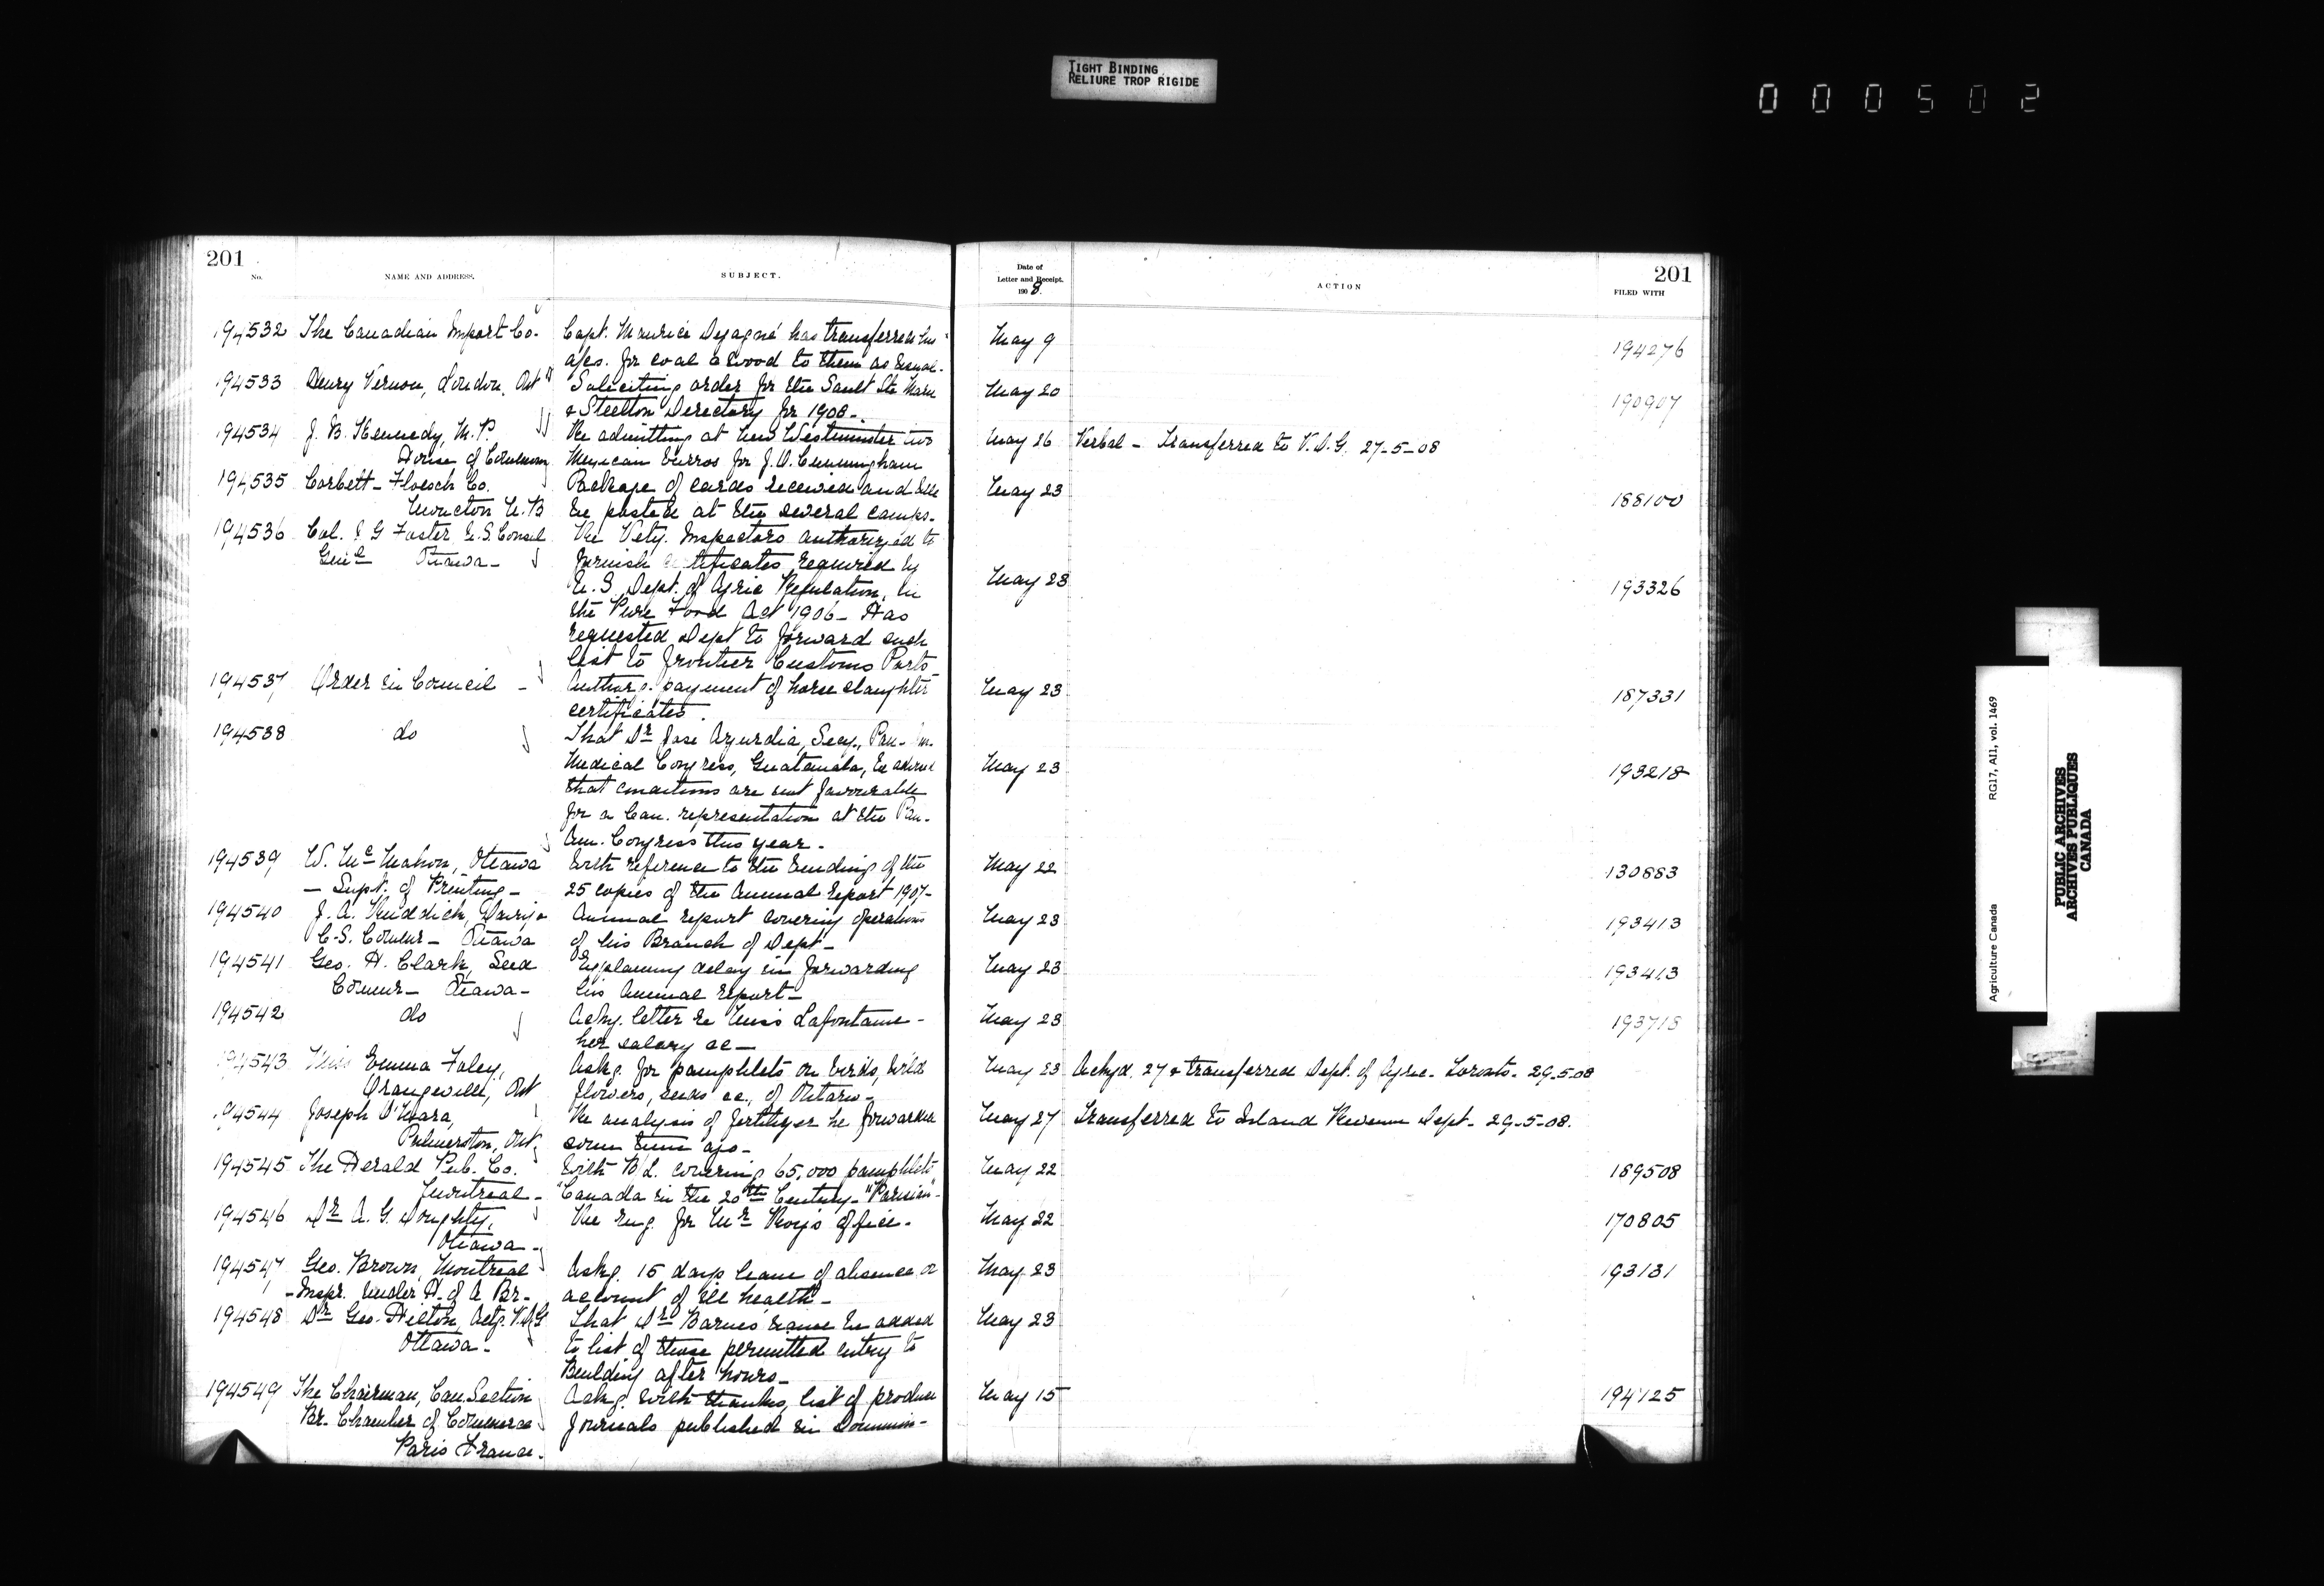 TIGHT BINDING
RELIURE TROP RIGIDE
0 0 0 5 0 2
201
No.
NAME AND ADDRESS.
SUBJECT.
194532 The Canadian Import Co.
Capt. Maurice has transferred his
for coal & wood to them as usual.
194533 Henry Vernon, London, Ont
Soliciting order for the Sault Ste Marie
& Steelton Directory for 1908-
194534 J. B. Kennedy, M.P.
House of Commons
Re admitting at New Westminster two
Mexican burros for J. D. Cunningham
194535 Corbett-Floesch Co.
Moncton N.B
Package of cards received and will
be posted at the several camps.
194536 Col. J G Foster U.S. Consul
Genl Ottawa-
Re Vety. Inspectors authorized to
furnish certificates required by
U.S. Dept. of Agric Regulation, in
the Pure Food Act 1906- Has
requested Dept to forward such
list to frontier Customs Ports
194537 Order in Council -
payment of horse slaughter
certificates.
194538 do
That Dr Jose Azurdia, Secy., Pan-Am.
Medical Congress, Guatemala, be advised
that conditions are not favourable
for a Can. representation at the Pan-
Am. Congress this year.
194539 W. McMahon, Ottawa
- Supt. of Printing-
With reference to the binding of the
25 copies of the Annual Report 1907-
194540 J. A. Ruddick, Dairy &
C.S. Commr- Ottawa
Annual report covering operations
of his Branch of Dept-
194541 Geo. H. Clark, Seed
Commr- Ottawa-
Explaining delay in forwarding
his Annual report-
194542 do
Ackg. letter re Miss Lafontaine-
her salary &c-
194543 Miss Emma Foley,
Orangeville, Ont
Askg. for pamphlets on birds, wild
flowers, seeds &c., of Ontario-
194544 Joseph O'Mara,
Palmerston, Ont
Re analysis of fertilizer he forwarded
some time ago-
194545 The Herald Pub. Co.
Montreal-
With B/L. covering 65,000 pamphlets
"Canada in the 20th Century-"Parisian"-
194546 Dr A. G. Doughty,
Ottawa-
Re rug for Mr Roy's office.
194547 Geo. Brown, Montreal
-Inspr. under H. of A Br.-
Askg. 15 days leave of absence on
account of ill health-
194548 Dr Geo. Hilton, Actg. V.D.G
Ottawa-
That Dr Barnes name be added
to list of those permitted entry to
Building after hours-
194549 The Chairman, Can. Section
Br. Chamber of Commerce
Paris France.
Ackg. with thanks, list of produce
Journals published in Dominion-
Date of
Letter and Receipt.
1908.
ACTION
201
FILED WITH
May 9 194276
May 20 190907
May 26 Verbal - Transferred to V.D.G. 27-5-08
May 23 188100
May 23 193326
May 23 187331
May 23 193218
May 22 130883
May 23 193413
May 23 193413
May 23 193718
May 23 Ackgd. 27 & transferred Dept. of Agric. Toronto. 29-5-08
May 27 Transferred to Inland Revenue Dept. 29-5-08.
May 22 189508
May 22 170805
May 23 193131
May 23
May 15 194125
Agriculture Canada RG17, AI1, vol. 1469
PUBLIC ARCHIVES
ARCHIVES PUBLIQUES
CANADA